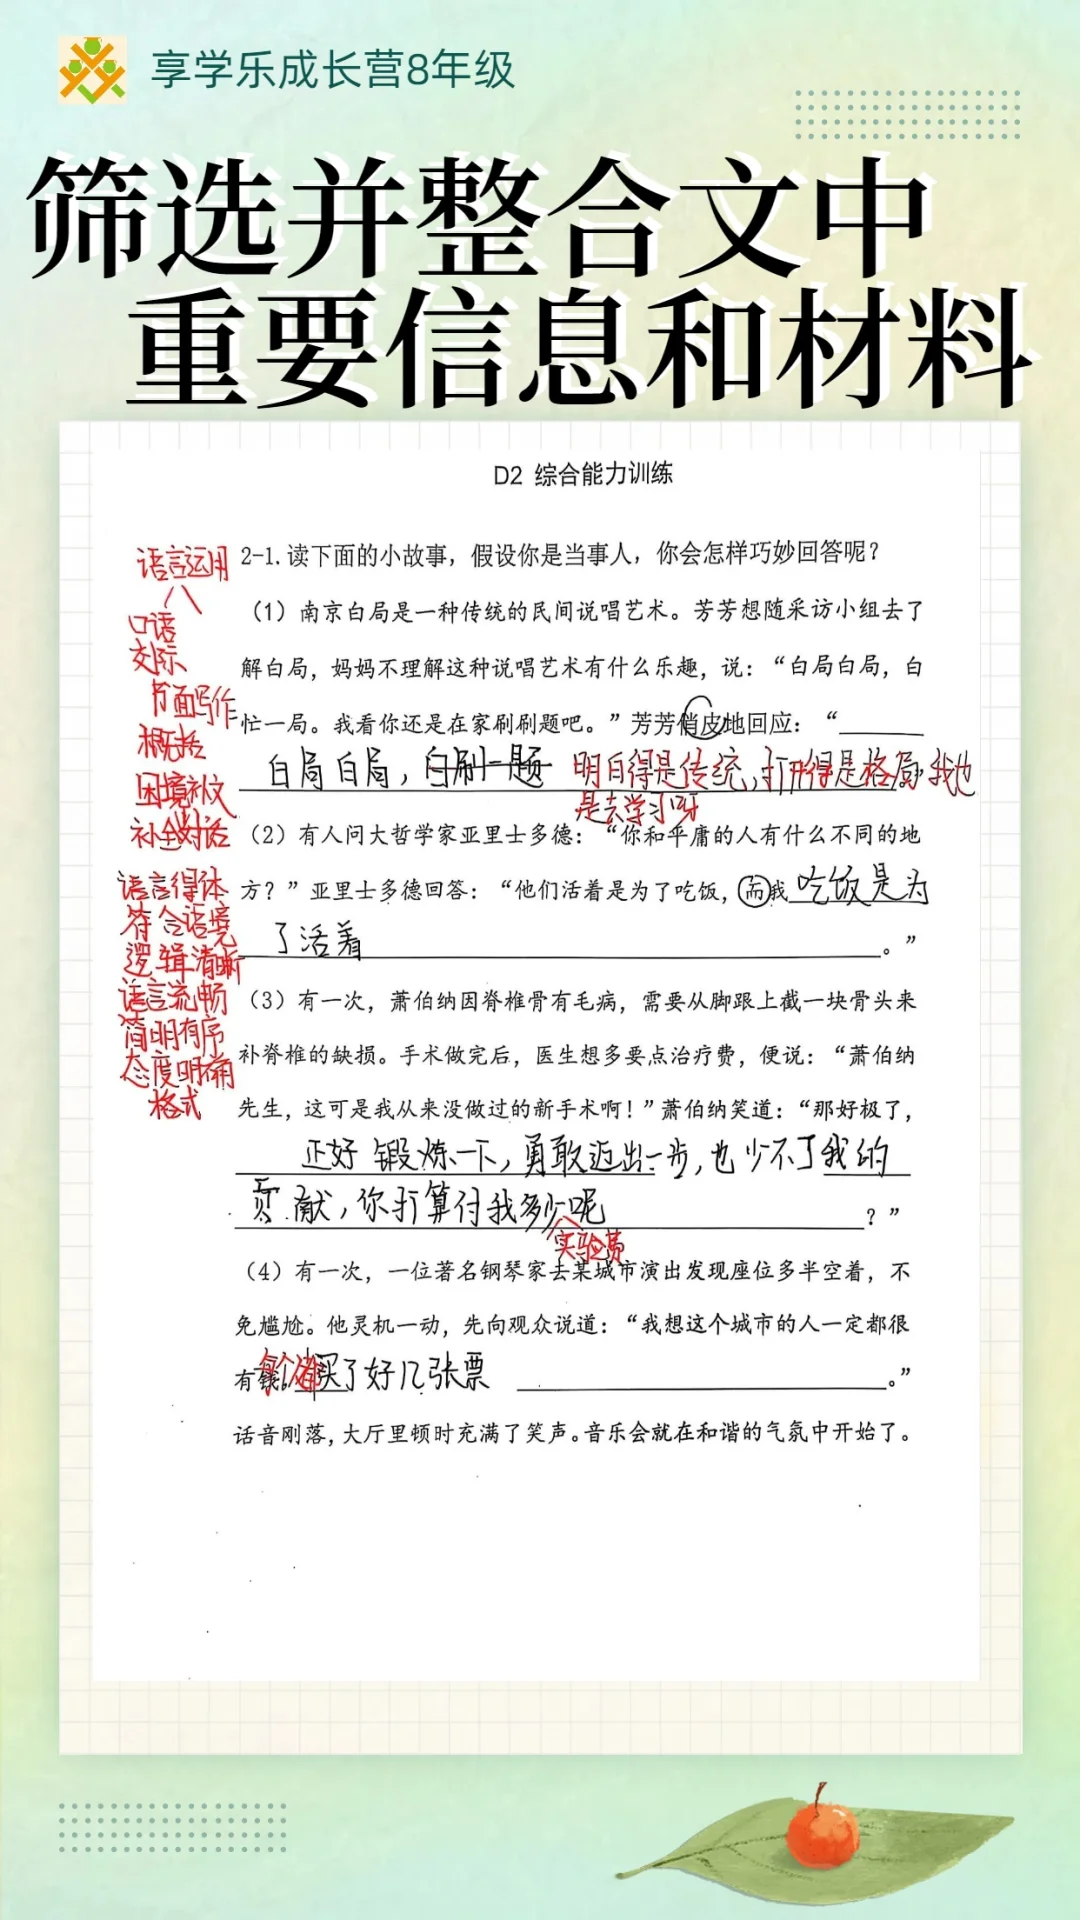 享学乐成长营8年级
筛选并整合文中
重要信息和材料
D2 综合能力训练
语言运用
口语
交际
书面写作
概括
困境补文
补全对话
语言得体
符合语境
逻辑清晰
语言流畅
简明有序
态度明确
格式
2-1.读下面的小故事，假设你是当事人，你会怎样巧妙回答呢？
（1）南京白局是一种传统的民间说唱艺术。芳芳想随采访小组去了
解白局，妈妈不理解这种说唱艺术有什么乐趣，说：“白局白局，白
忙一局。我看你还是在家刷刷题吧。”芳芳俏皮地回应：“
白局白局，白刷一题 明白得是传统，打开得是格局，我也
是去学习呀
（2）有人问大哲学家亚里士多德：“你和平庸的人有什么不同的地
方？”亚里士多德回答：“他们活着是为了吃饭，而我吃饭是为
了活着。”
（3）有一次，萧伯纳因脊椎骨有毛病，需要从脚跟上截一块骨头来
补脊椎的缺损。手术做完后，医生想多要点治疗费，便说：“萧伯纳
先生，这可是我从来没做过的新手术啊！”萧伯纳笑道：“那好极了，
正好锻炼一下，勇敢迈出一步，也少不了我的
贡献，你打算付我多少呢？”
实验费
（4）有一次，一位著名钢琴家去某城市演出发现座位多半空着，不
免尴尬。他灵机一动，先向观众说道：“我想这个城市的人一定都很
有钱。每个人都买了好几张票。”
话音刚落，大厅里顿时充满了笑声。音乐会就在和谐的气氛中开始了。